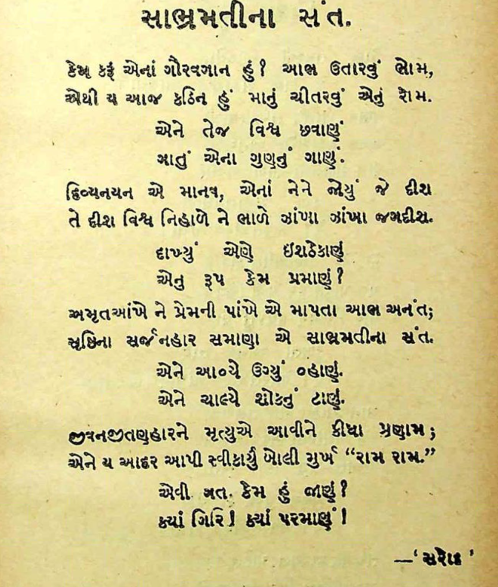 સાબ્રમતીના સંત.
કેમ કરું એનાં ગૌરવગાન હું? આભ ઉતારવું ભોમ,
એથી ય આજ કઠિન હું માનું ચીતરવું એનું રોમ.
એને તેજ વિશ્વ છવાણું
ગાતું એના ગુણનું ગાણું.
દિવ્યનયન એ માનવ, એનાં નેને જોયું જે દીશ
તે દીશ વિશ્વ નિહાળે ને ભાળે ઝાંખા ઝાંખા જગદીશ.
દાખ્યું એણે ઇશઠેકાણું
એનુ રૂપ કેમ પ્રમાણું?
અમૃતઆંખે ને પ્રેમની પાંખે એ માપતા આભ અનંત;
સૃષ્ટિના સર્જનહાર સમાણા એ સાભ્રમતીના સંત.
એને આવ્યે ઉગ્યું વ્હાણું.
એને ચાલ્યે શોકનું ટાણું.
જીવનજીતણહારને મૃત્યુએ આવીને કીધા પ્રણામ;
એને ય આદર આપી સ્વીકાર્યું બોલી ગુર્ખ “રામ રામ.”
એવી ગત કેમ હું જાણું?
ક્યાં ગિરિ! ક્યાં પરમાણું!
—‘સરોદ’